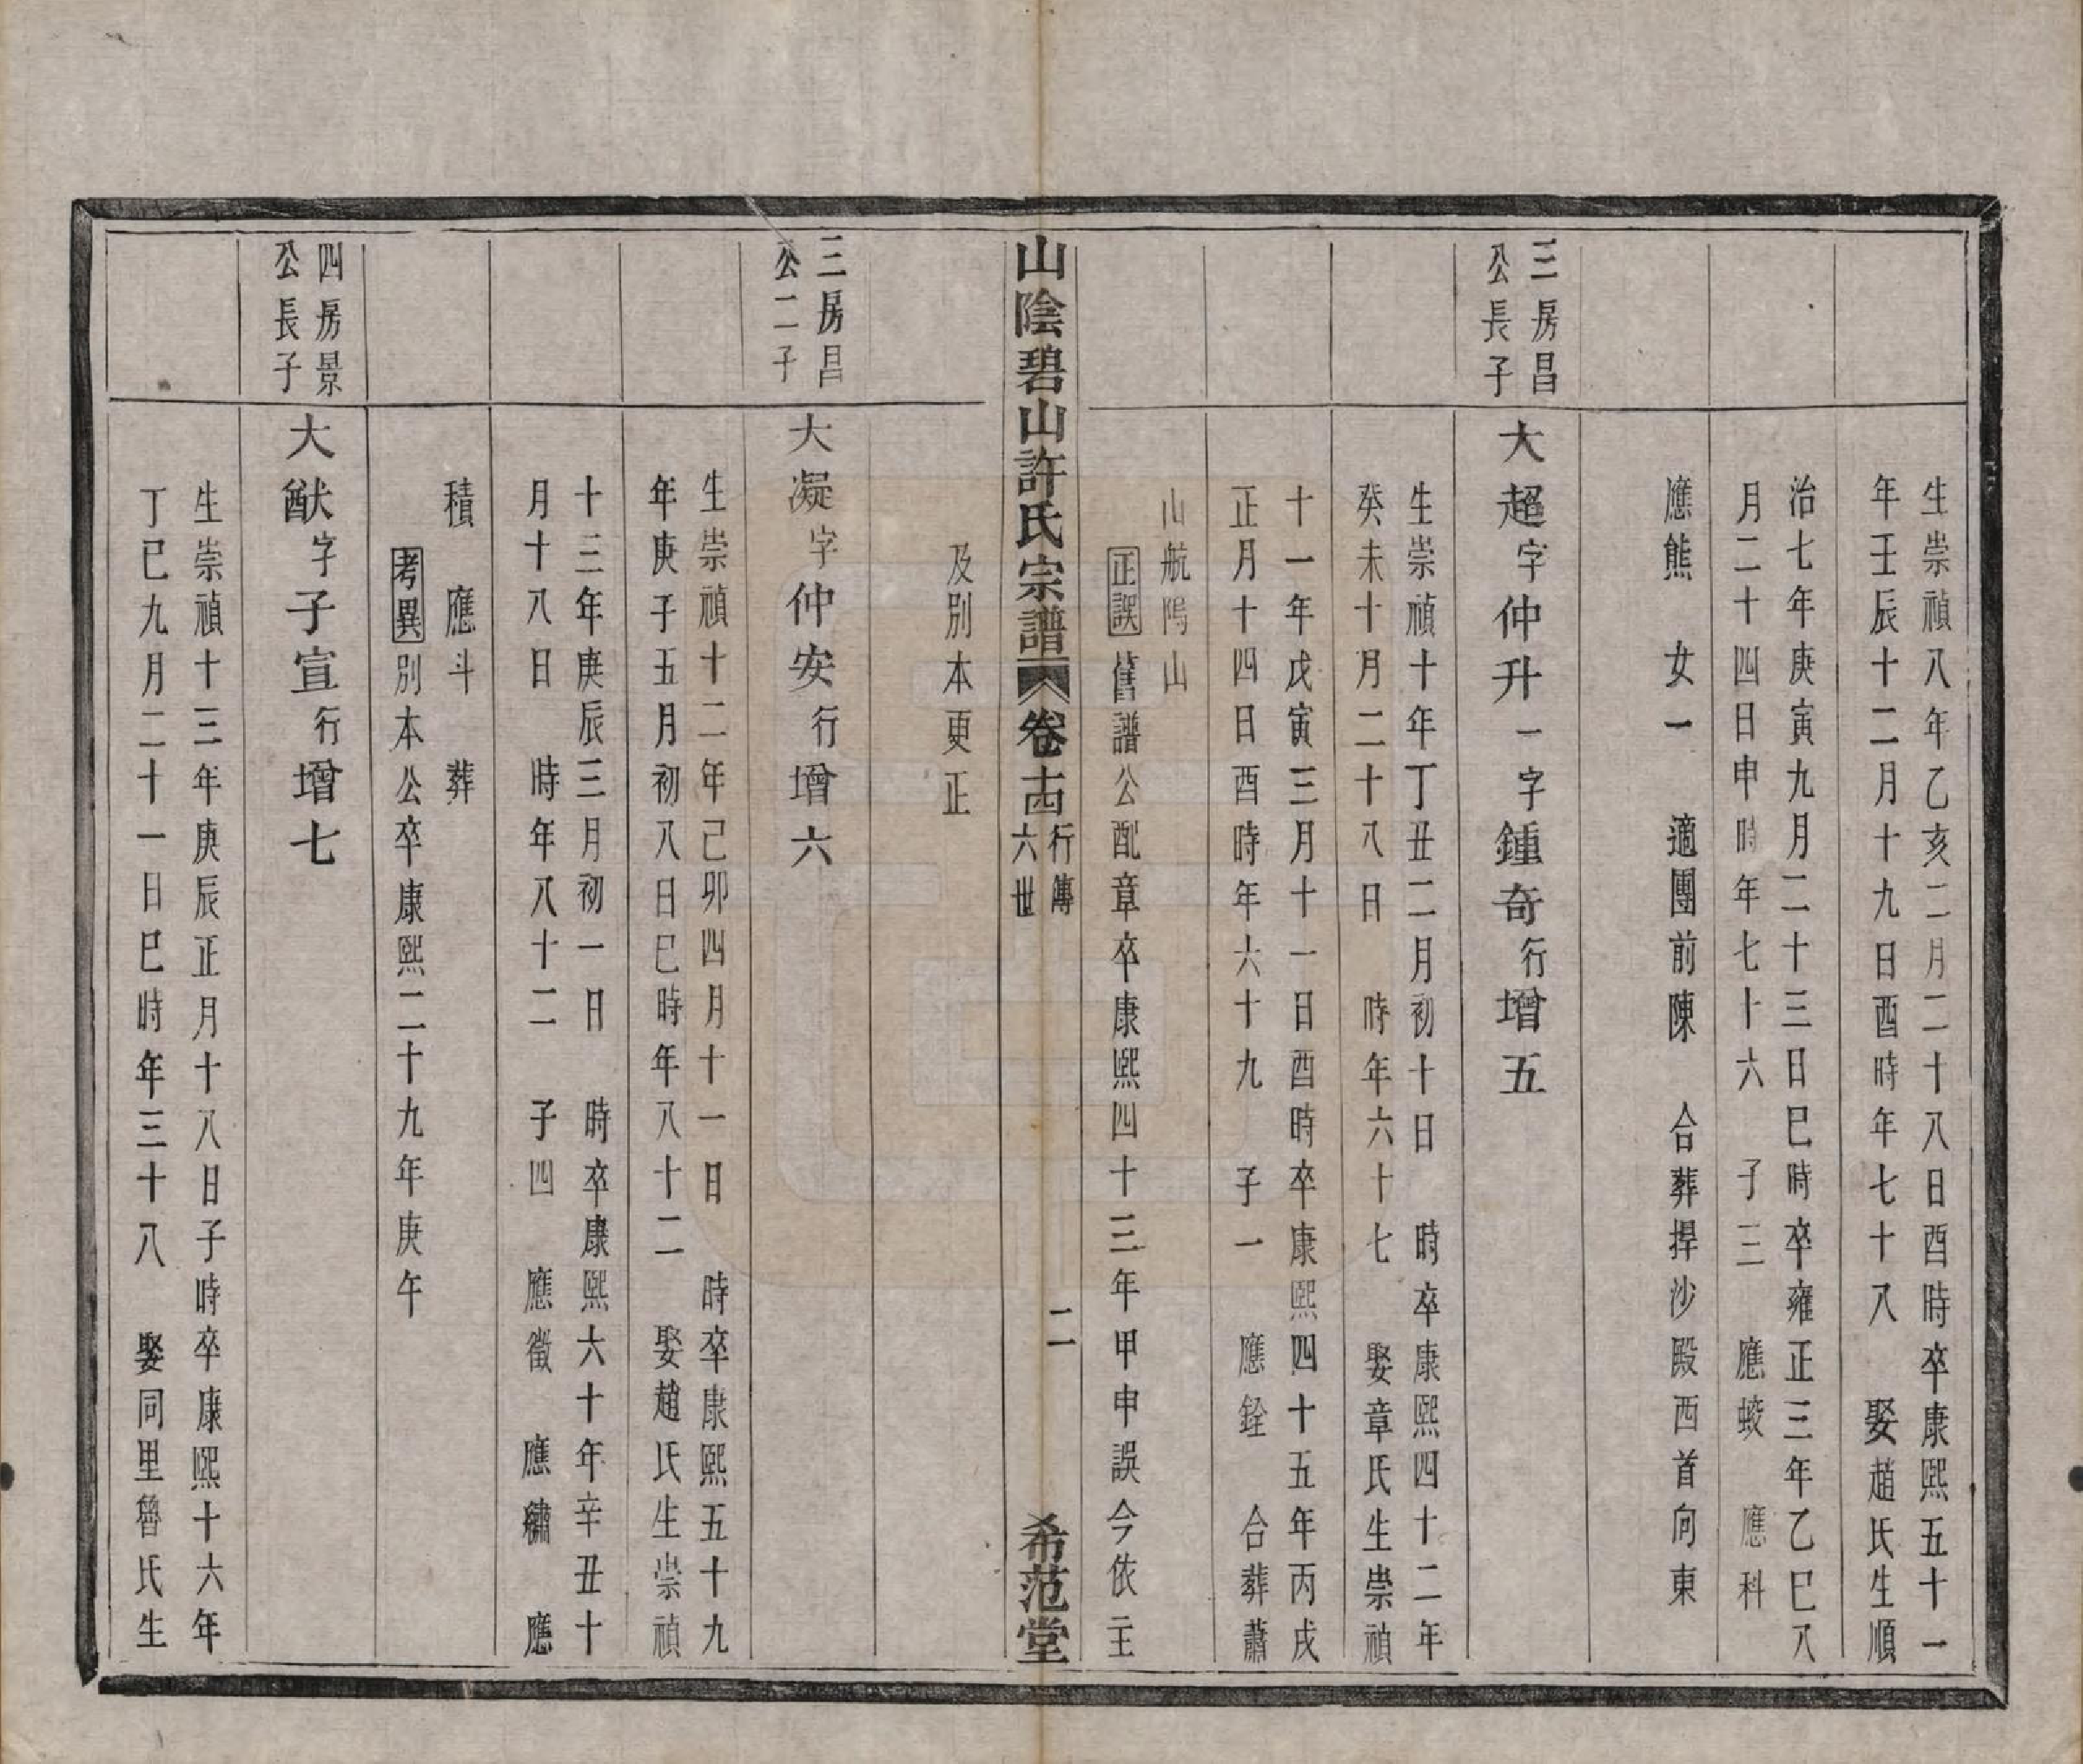 生崇禎八年乙亥二月二十八日酉時卒康熙五十一
年壬辰十二月十九日酉時年七十八　娶趙氏生順
治七年庚寅九月二十三日巳時卒雍正三年乙巳八
月二十四日申時年七十六　子三　應蛟　應科
應熊　女一　適團前陳　合葬捍沙殿西首向東
三房昌
公長子
大超字仲升一字鍾奇行增五
生崇禎十年丁丑二月初十日　時卒康熙四十二年
癸未十月二十八日　時年六十七　娶章氏生崇禎
十一年戊寅三月十一日酉時卒康熙四十五年丙戌
正月十四日酉時年六十九　子一　應銓　合葬蕭
山航塢山
正誤舊譜公配章卒康熙四十三年甲申誤今依主
山陰碧山許氏宗譜　卷十四　行傳　六世　二　希范堂
及別本更正
三房昌
公二子
大凝字仲安行增六
生崇禎十二年己卯四月十一日　時卒康熙五十九
年庚子五月初八日巳時年八十二　娶趙氏生崇禎
十三年庚辰三月初一日　時卒康熙六十年辛丑十
月十八日　時年八十二　子四　應徵　應繡　應
積　應斗　葬
考異別本公卒康熙二十九年庚午
四房景
公長子
大猷字子宣行增七
生崇禎十三年庚辰正月十八日子時卒康熙十六年
丁巳九月二十一日巳時年三十八　娶同里魯氏生